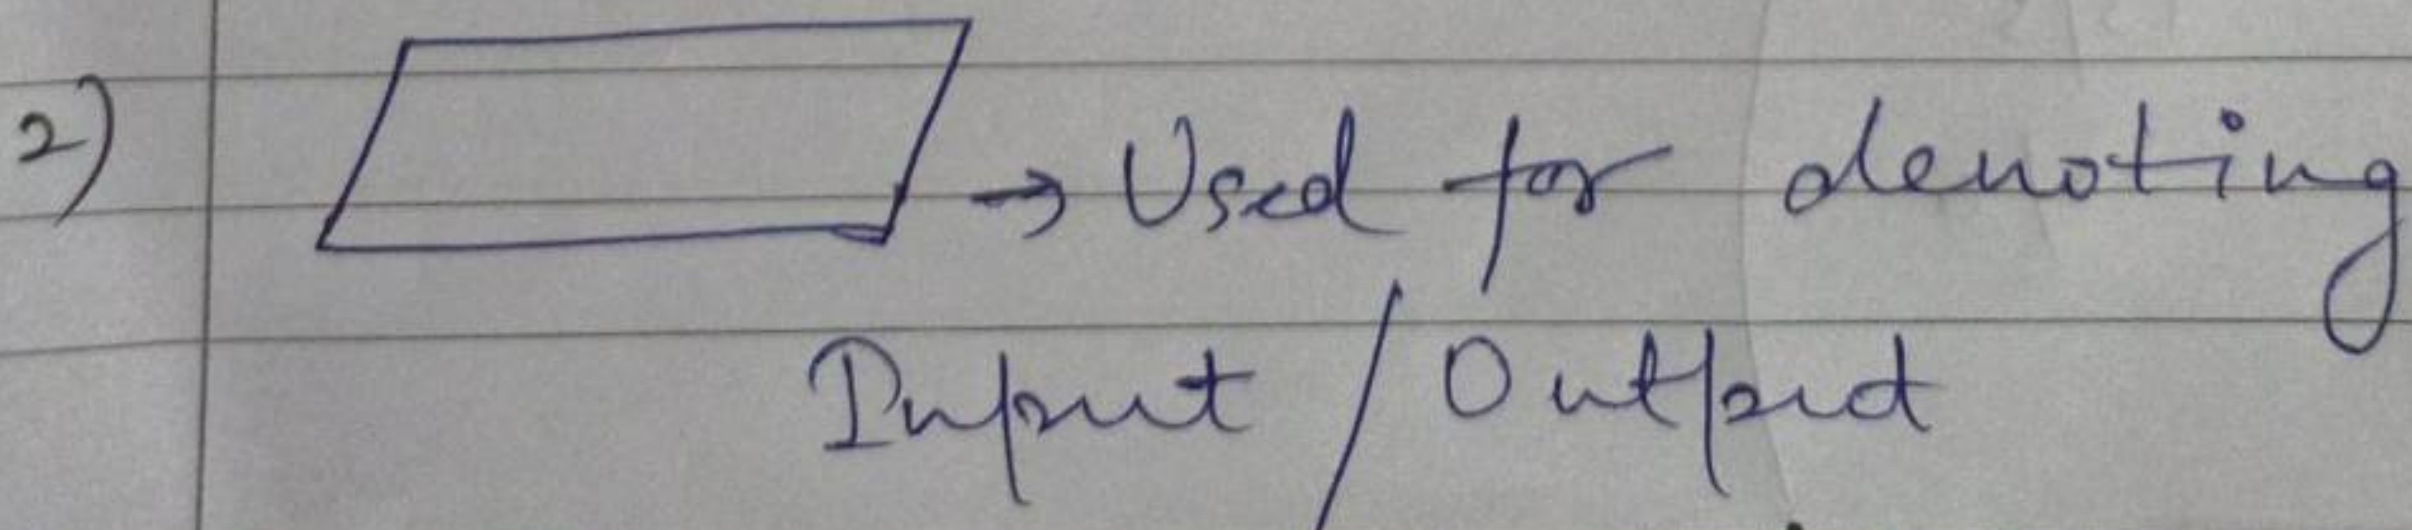 2) → Used for denoting
Input / Output